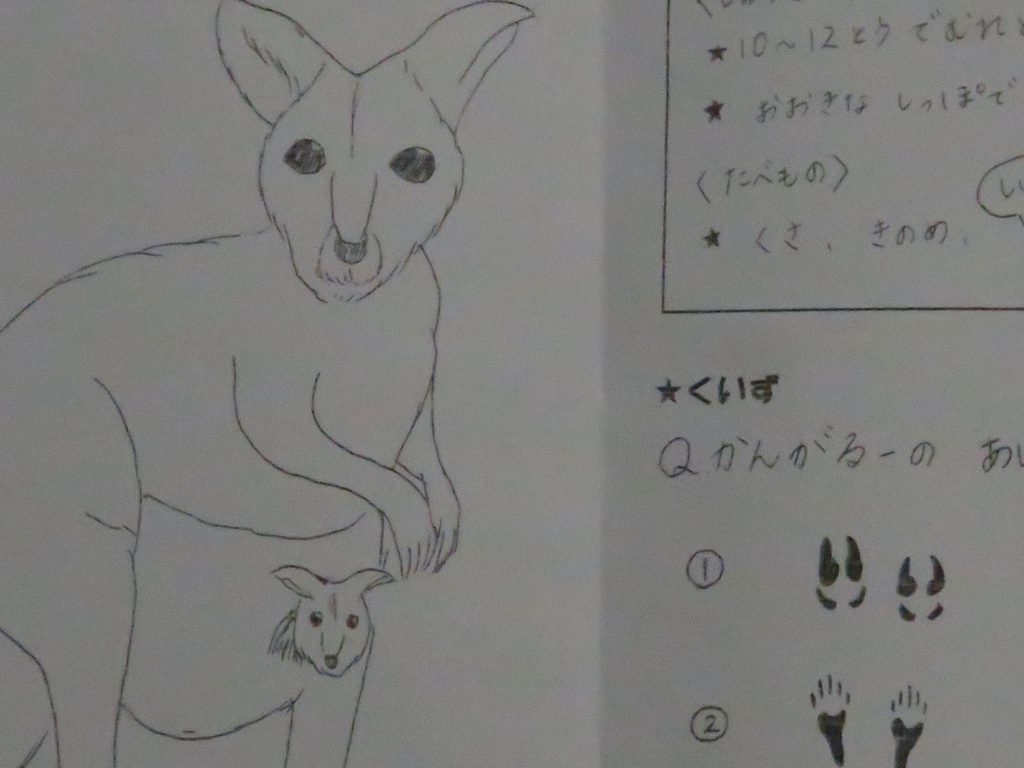 ★10～12とうでむれ
★おおきな しっぽで
〈たべもの〉
★くさ、きのめ、
★くいず
Qかんがるーの あし
①
②